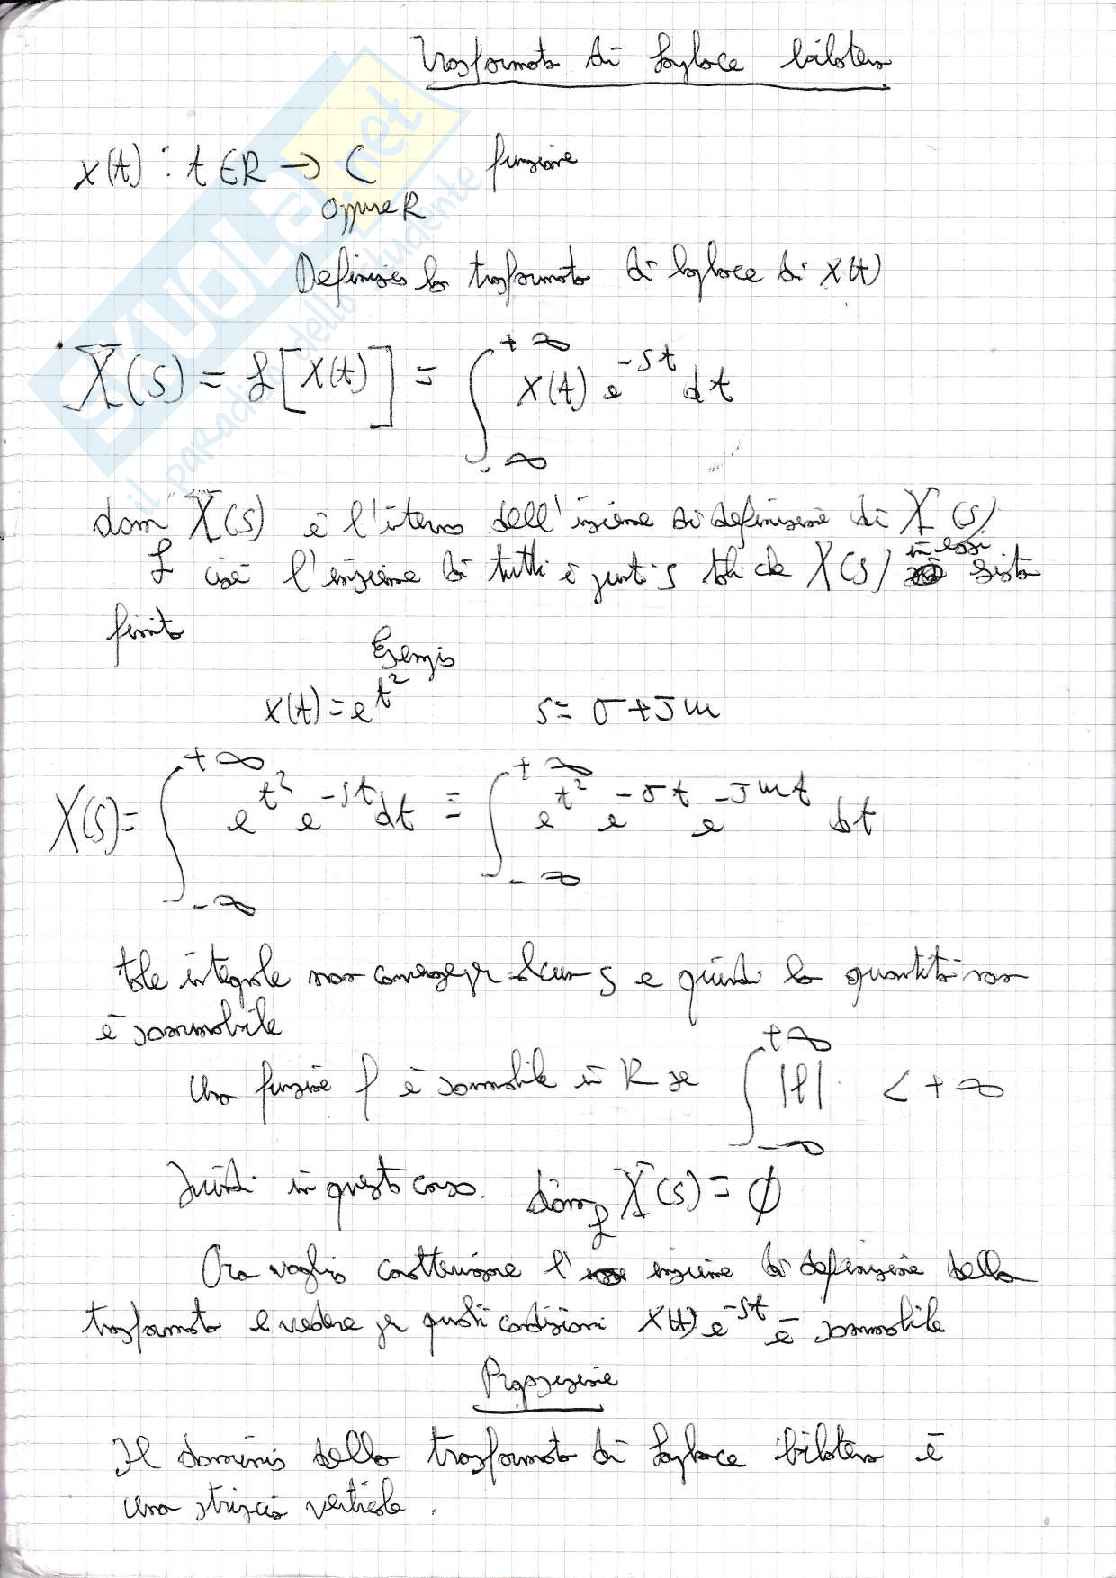 Trasformata di Laplace bilatera
x(t) : t ∈ R → C funzione
oppure R
Definisco la trasformata di Laplace di x(t)
X(s) = L[x(t)] = ∫_{-∞}^{+∞} x(t) e^{-st} dt
dom_L X(s) è l'interno dell'insieme di definizione di X(s)
cioè l'insieme di tutti i punti s tali che X(s) in essi esista
finito
Esempio
x(t) = e^{t²} s = σ + Jω
X(s) = ∫_{-∞}^{+∞} e^{t²} e^{-st} dt = ∫_{-∞}^{+∞} e^{t²} e^{-σt} e^{-Jωt} dt
tale integrale non converge per alcun s e quindi la quantità non
è sommabile
Una funzione f è sommabile in R se ∫_{-∞}^{+∞} |f| < +∞
Quindi in questo caso dom_L X(s) = ∅
Ora voglio caratterizzare l' insieme di definizione della
trasformata e vedere per quali condizioni x(t) e^{-st} è sommabile
Proposizione
Il dominio della trasformata di Laplace bilatera è
una striscia verticale.
SKUOLA.net
il paradiso dello studente